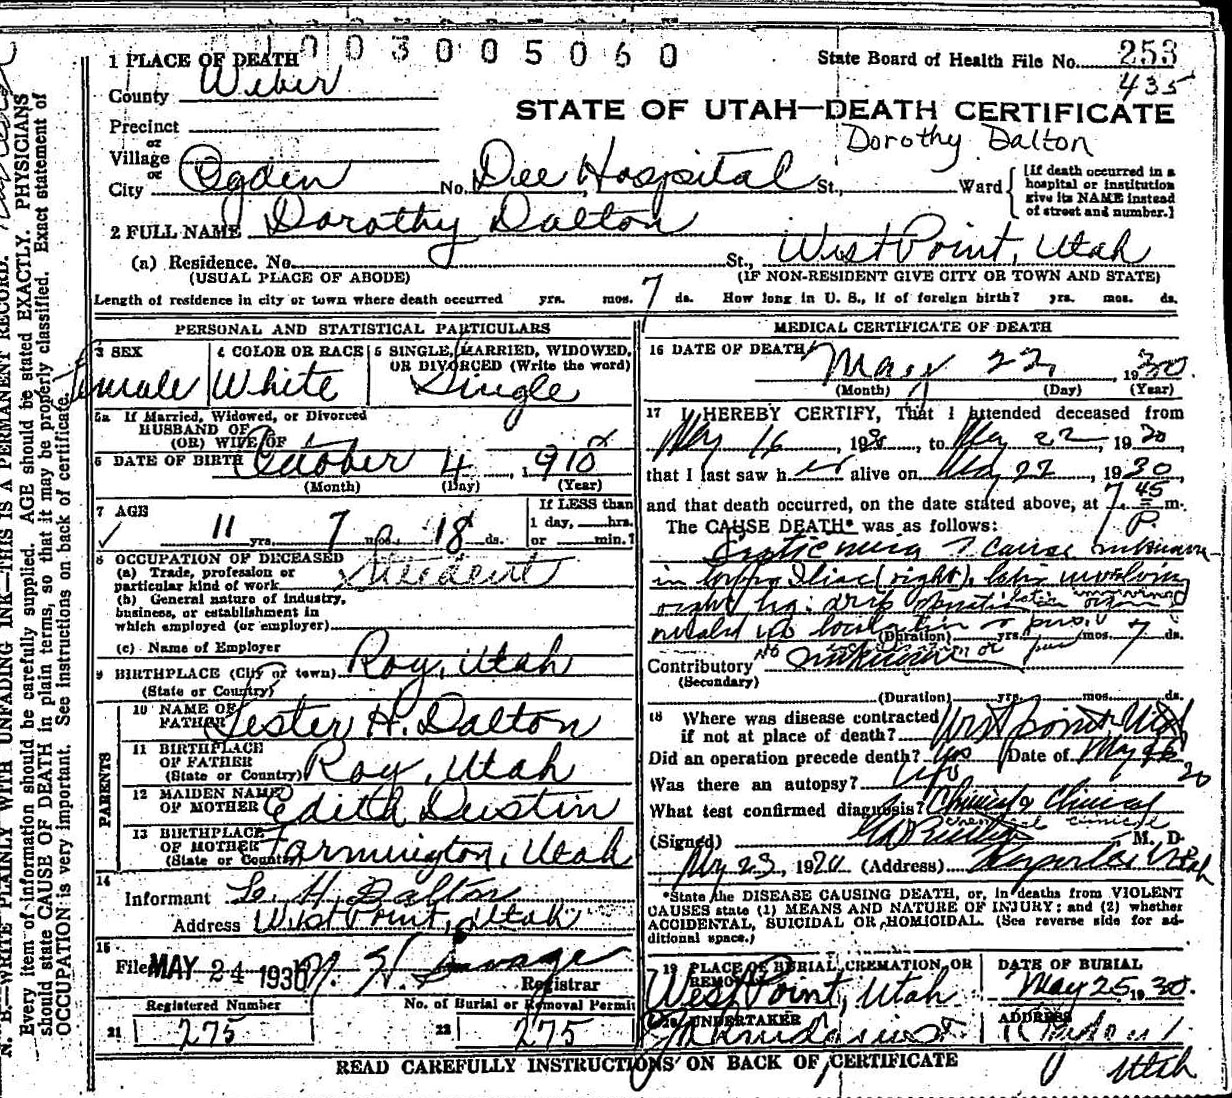 1003005060
State Board of Health File No. 253
435
1 PLACE OF DEATH
County Weber
STATE OF UTAH—DEATH CERTIFICATE
Precinct
Dorothy Dalton
or
Village
or
City Ogden No. Dee Hospital St., Ward
[If death occurred in a hospital or institution give its NAME instead of street and number.]
2 FULL NAME Dorothy Dalton
(a) Residence. No. St., West Point, Utah
(USUAL PLACE OF ABODE) (IF NON-RESIDENT GIVE CITY OR TOWN AND STATE)
Length of residence in city or town where death occurred yrs. mos. 7 ds. How long in U. S., if of foreign birth? yrs. mos. ds.
PERSONAL AND STATISTICAL PARTICULARS
3 SEX 4 COLOR OR RACE 5 SINGLE, MARRIED, WIDOWED, OR DIVORCED (Write the word)
emale White Single
5a If Married, Widowed, or Divorced
HUSBAND OF
(OR) WIFE OF
6 DATE OF BIRTH October 4, 1918
(Month) (Day) (Year)
7 AGE 11 yrs. 7 mos. 18 ds.
If LESS than
1 day, hrs.
or min.?
8 OCCUPATION OF DECEASED
(a) Trade, profession or
particular kind of work Student
(b) General nature of industry,
business, or establishment in
which employed (or employer)
(c) Name of Employer
9 BIRTHPLACE (City or town) Roy, Utah
(State or Country)
PARENTS
10 NAME OF
FATHER Lester H. Dalton
11 BIRTHPLACE
OF FATHER
(State or Country) Roy, Utah
12 MAIDEN NAME
OF MOTHER Edith Dustin
13 BIRTHPLACE
OF MOTHER
(State or Country) Farmington, Utah
14
Informant L. H. Dalton
Address West Point, Utah
15
Filed MAY 24 1930 H. Savage
Registrar
Registered Number No. of Burial or Removal Permit
21 275 22 275
MEDICAL CERTIFICATE OF DEATH
16 DATE OF DEATH May 22, 1930
(Month) (Day) (Year)
17 I HEREBY CERTIFY, That I attended deceased from
May 16 193, to May 22, 1930
that I last saw her alive on May 22, 1930
and that death occurred, on the date stated above, at 7 45 m.
P.
The CAUSE DEATH* was as follows:
Septicemia ? cause unknown
in Iliac (right), later involving
right
(Duration) yrs. mos. 7 ds.
Contributory unknown
(Secondary)
(Duration) yrs. mos. ds.
18 Where was disease contracted
if not at place of death? West Point Utah
Did an operation precede death? Yes Date of May
Was there an autopsy? Yes
What test confirmed diagnosis? Clinical
chemical clinical
(Signed) M. D.
May 23, 19 (Address) Kaysville, Utah
*State the DISEASE CAUSING DEATH, or, in deaths from VIOLENT
CAUSES state (1) MEANS AND NATURE OF INJURY; and (2) whether
ACCIDENTAL, SUICIDAL OR HOMICIDAL. (See reverse side for ad-
ditional space.)
19 PLACE OF BURIAL, CREMATION, OR REMOVAL DATE OF BURIAL
West Point, Utah May 25, 1930.
20 UNDERTAKER ADDRESS
Utah
READ CAREFULLY INSTRUCTIONS ON BACK OF CERTIFICATE
N. B.—WRITE PLAINLY WITH UNFADING INK—THIS IS A PERMANENT RECORD.
Every item of information should be carefully supplied. AGE should be stated EXACTLY. PHYSICIANS
should state CAUSE OF DEATH in plain terms, so that it may be properly classified. Exact statement of
OCCUPATION is very important. See instructions on back of certificate.